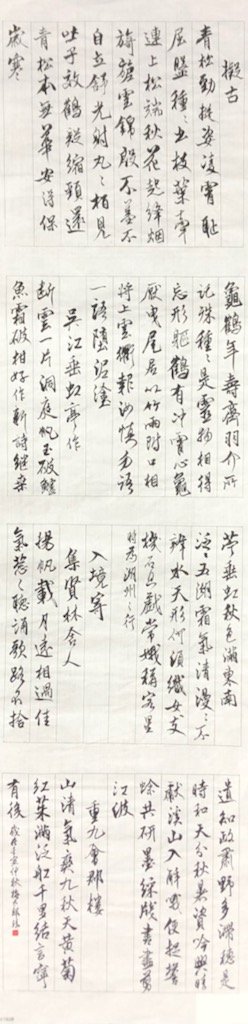 擬古
青松勁挺姿凌霄恥
屈盤種〻出枝葉牽
連上松端秋花起絳烟
旖旎雲錦殷不羞不
自立舒光射丸〻柏見
吐子效鶴疑縮頸還
青松本無華安得保
歲寒
龜鶴年壽齊羽介所
託殊種〻是靈物相得
忘形軀鶴有冲霄心龜
厭曳尾居以竹兩附口相
將上雲衢報汝慎勿語
一語墮泥塗
吳江垂虹亭作
斷雲一片洞庭帆玉破鱸
魚霜破柑好作新詩繼桑
苧垂虹秋色滿東南
泛〻五湖霜氣清漫〻不
辨水天形何須織女支
機石且戲常娥稱客星
時為湖州之行
入境寄
集賢林舍人
揚帆載月遠相過佳
氣蔥〻聽誦歌路不拾
遺知政肅野多滯穗是
時和天分秋暑資吟興晴
獻溪山入醉哦便捉蟾
蜍共研墨綵牋書盡剪
江波
重九會郡樓
山清氣爽九秋天黃菊
紅茱滿泛船千里結言寧
有後 仲秋